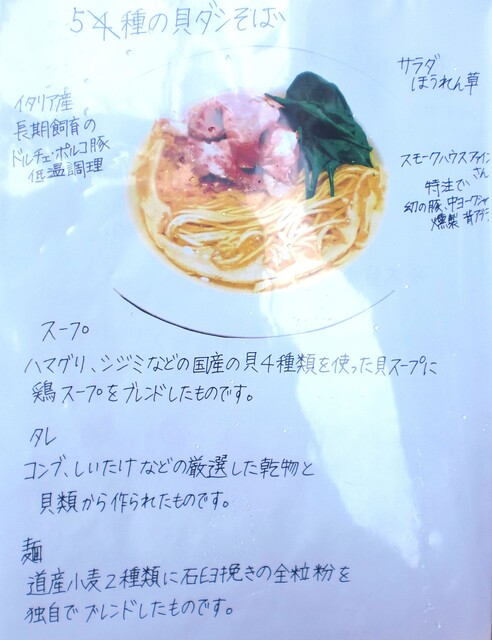 5種の貝ダシそば
イタリア産
長期飼育の
ドルチェ・ポルコ豚
低温調理
サラダ
ほうれん草
スモークハウスファイン
さん
特注で
幻の豚、中ヨークシャ
燻製
スープ
ハマグリ、シジミなどの国産の貝4種類を使った貝スープに
鶏スープをブレンドしたものです。
タレ
コンブ、しいたけなどの厳選した乾物と
貝類から作られたものです。
麺
道産小麦2種類に石臼挽きの全粒粉を
独自でブレンドしたものです。